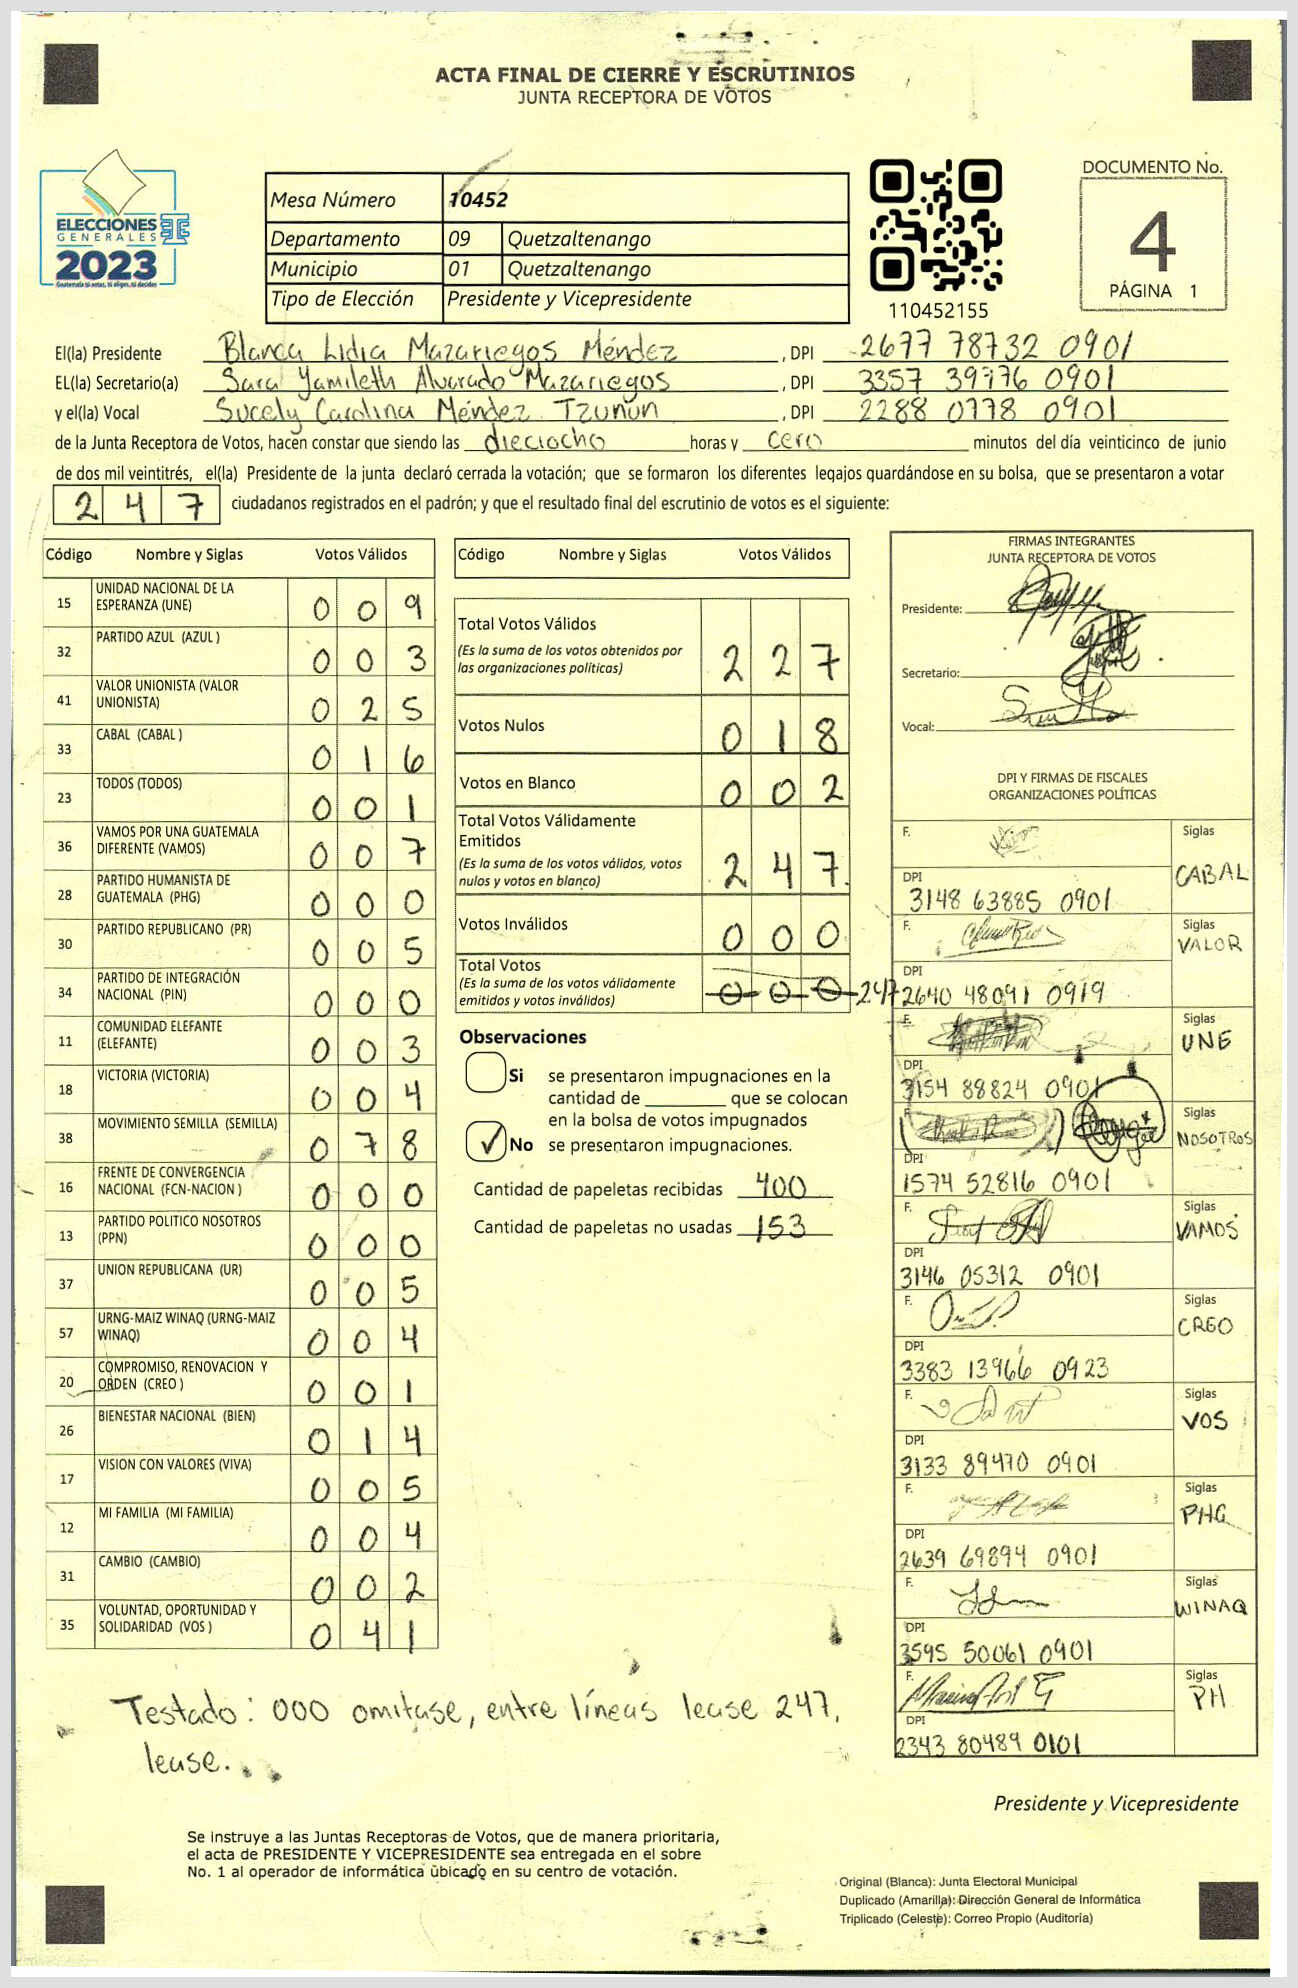 ACTA FINAL DE CIERRE Y ESCRUTINIOS
JUNTA RECEPTORA DE VOTOS
ELECCIONES
GENERALES
2023
Guatemala tú votas, tú eliges, tú decides
Mesa Número 10452
Departamento 09 Quetzaltenango
Municipio 01 Quetzaltenango
Tipo de Elección Presidente y Vicepresidente
110452155
DOCUMENTO No.
4
PÁGINA 1
El(la) Presidente Blanca Lidia Mazariegos Méndez , DPI 2677 78732 0901
EL(la) Secretario(a) Sara Yamileth Alvarado Mazariegos , DPI 3357 39976 0901
y el(la) Vocal Sucely Carolina Méndez Tzunun , DPI 2288 0778 0901
de la Junta Receptora de Votos, hacen constar que siendo las dieciocho horas y cero minutos del día veinticinco de junio
de dos mil veintitrés, el(la) Presidente de la junta declaró cerrada la votación; que se formaron los diferentes legajos guardándose en su bolsa, que se presentaron a votar
247 ciudadanos registrados en el padrón; y que el resultado final del escrutinio de votos es el siguiente:
Código Nombre y Siglas Votos Válidos
15 UNIDAD NACIONAL DE LA ESPERANZA (UNE) 009
32 PARTIDO AZUL (AZUL ) 003
41 VALOR UNIONISTA (VALOR UNIONISTA) 025
33 CABAL (CABAL ) 016
23 TODOS (TODOS) 001
36 VAMOS POR UNA GUATEMALA DIFERENTE (VAMOS) 007
28 PARTIDO HUMANISTA DE GUATEMALA (PHG) 000
30 PARTIDO REPUBLICANO (PR) 005
34 PARTIDO DE INTEGRACIÓN NACIONAL (PIN) 000
11 COMUNIDAD ELEFANTE (ELEFANTE) 003
18 VICTORIA (VICTORIA) 004
38 MOVIMIENTO SEMILLA (SEMILLA) 078
16 FRENTE DE CONVERGENCIA NACIONAL (FCN-NACION ) 000
13 PARTIDO POLITICO NOSOTROS (PPN) 000
37 UNION REPUBLICANA (UR) 005
57 URNG-MAIZ WINAQ (URNG-MAIZ WINAQ) 004
20 COMPROMISO, RENOVACION Y ORDEN (CREO ) 001
26 BIENESTAR NACIONAL (BIEN) 014
17 VISION CON VALORES (VIVA) 005
12 MI FAMILIA (MI FAMILIA) 004
31 CAMBIO (CAMBIO) 002
35 VOLUNTAD, OPORTUNIDAD Y SOLIDARIDAD (VOS ) 041
Código Nombre y Siglas Votos Válidos
Total Votos Válidos 227
(Es la suma de los votos obtenidos por
las organizaciones políticas)
Votos Nulos 018
Votos en Blanco 002
Total Votos Válidamente
Emitidos 247
(Es la suma de los votos válidos, votos
nulos y votos en blanco)
Votos Inválidos 000
Total Votos 000 247
(Es la suma de los votos válidamente
emitidos y votos inválidos)
Observaciones
Si se presentaron impugnaciones en la
cantidad de ________ que se colocan
en la bolsa de votos impugnados
✓ No se presentaron impugnaciones.
Cantidad de papeletas recibidas 400
Cantidad de papeletas no usadas 153
FIRMAS INTEGRANTES
JUNTA RECEPTORA DE VOTOS
Presidente:
Secretario:
Vocal:
DPI Y FIRMAS DE FISCALES
ORGANIZACIONES POLÍTICAS
F. Siglas CABAL
DPI 3148 63885 0901
F. Siglas VALOR
DPI 2640 48091 0919
F. Siglas UNE
DPI 3154 88824 0901
F. Siglas NOSOTROS
DPI 1574 52816 0901
F. Siglas VAMOS
DPI 3146 05312 0901
F. Siglas CREO
DPI 3383 13966 0923
F. Siglas VOS
DPI 3133 89470 0901
F. Siglas PHG
DPI 2639 69894 0901
F. Siglas WINAQ
DPI 3595 50061 0901
F. Siglas PH
DPI 2343 80489 0101
Testado: 000 omitase, entre líneas lease 247,
lease.
Presidente y Vicepresidente
Se instruye a las Juntas Receptoras de Votos, que de manera prioritaria,
el acta de PRESIDENTE Y VICEPRESIDENTE sea entregada en el sobre
No. 1 al operador de informática ubicado en su centro de votación.
Original (Blanca): Junta Electoral Municipal
Duplicado (Amarilla): Dirección General de Informática
Triplicado (Celeste): Correo Propio (Auditoría)